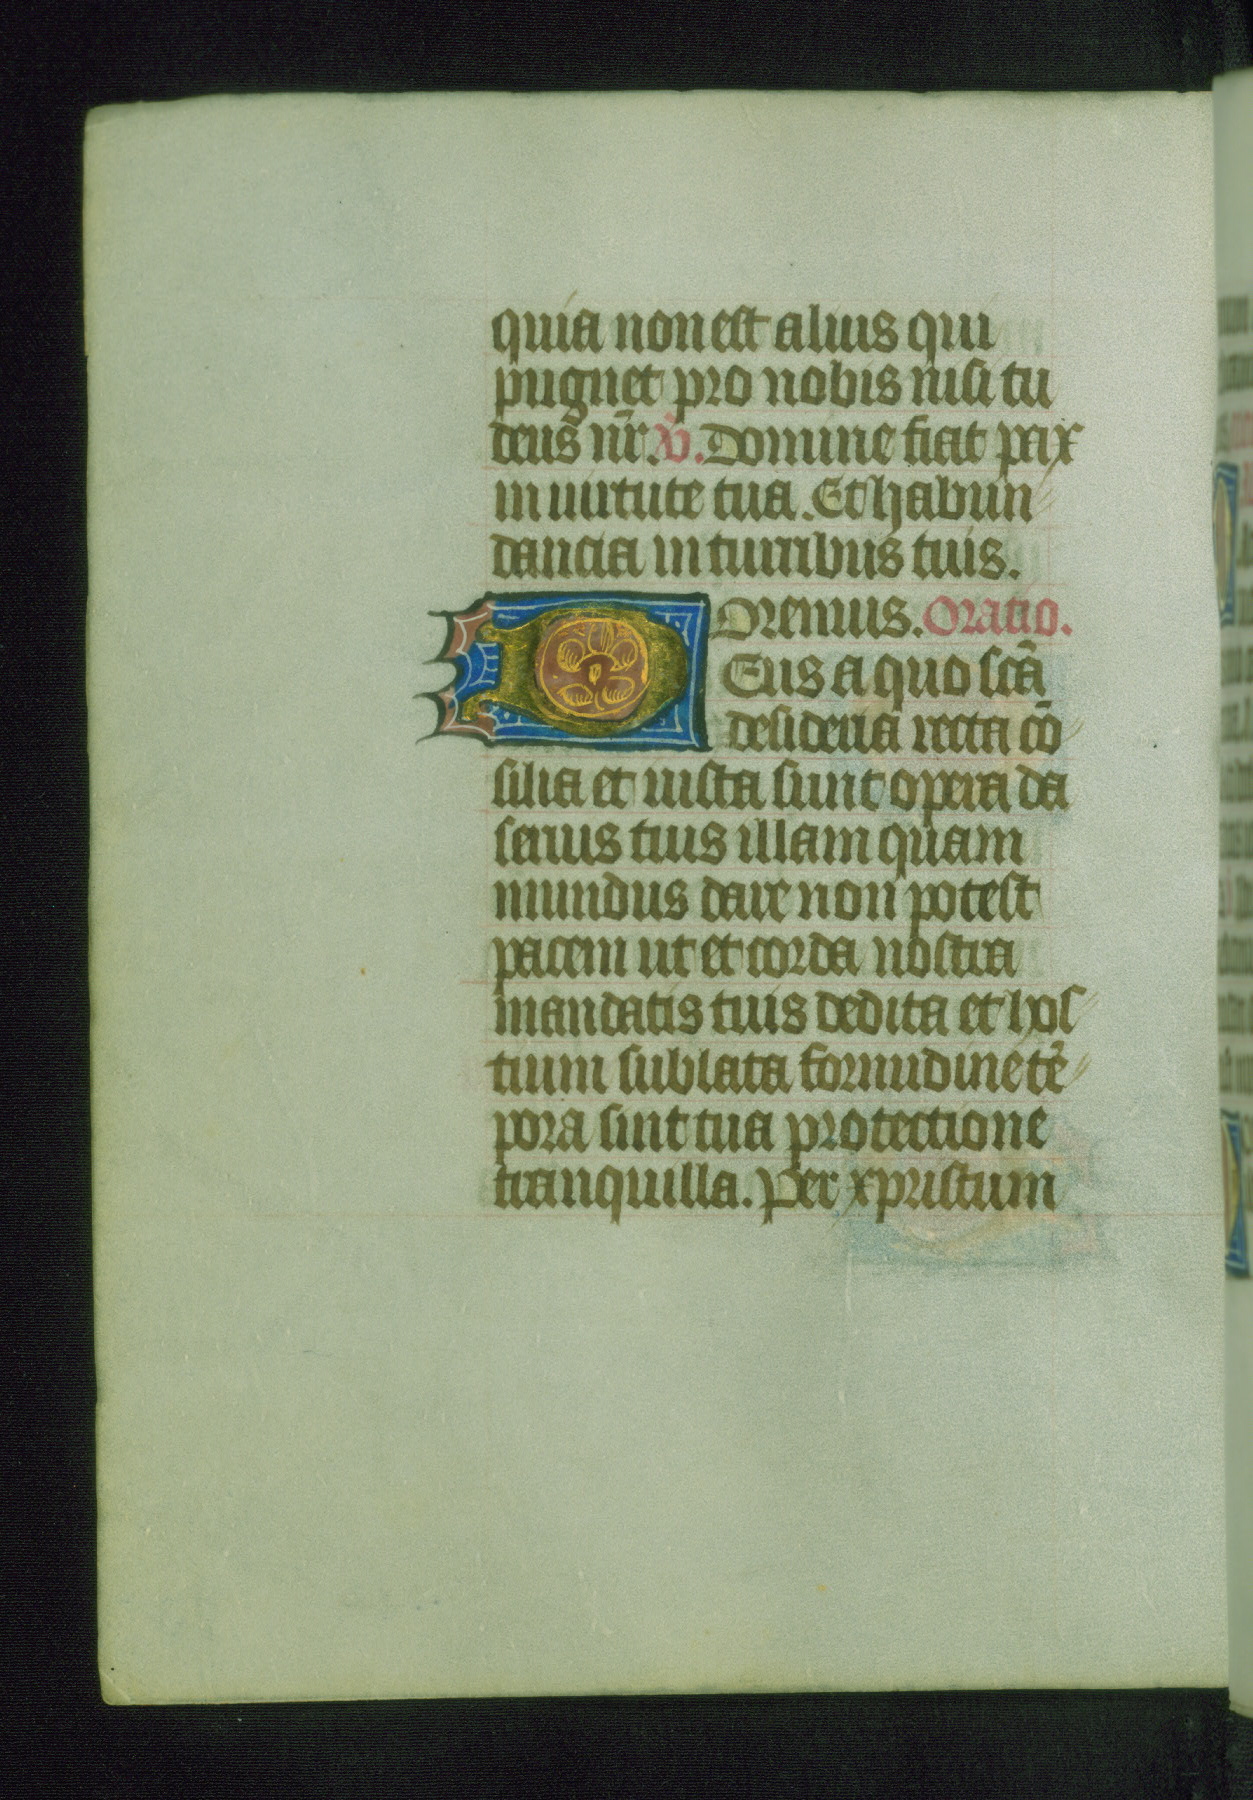 quia non est alius qui
pugnet pro nobis nisi tu
deus nr̄. V̄. Domine fiat pax
in uirtute tua. Et habun
dancia in turribus tuis.
Oremus. Oratio.
DEus a quo scā
desideria recta cō
silia et iusta sunt opera da
seruis tuis illam quam
mundus dare non potest
pacem ut et corda nostra
mandatis tuis dedita et hos
tium sublata formidine tē
pora sint tua protectione
tranquilla. Per xpristum